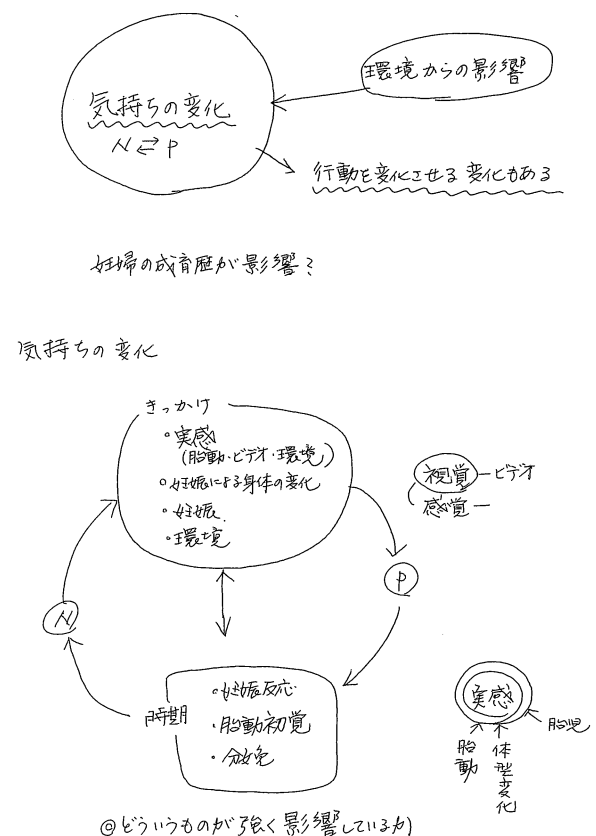 環境からの影響
気持ちの変化
N ⇄ P
行動を変化させる変化もある
妊婦の成育歴が影響?
気持ちの変化
きっかけ
・実感
(胎動・ビデオ・環境)
・妊娠による身体の変化
・妊娠
・環境
視覚―ビデオ
感覚―
P
N
時期
・妊娠反応
・胎動初覚
・分娩
実感
胎動
体型変化
胎児
◎どういうものが強く影響しているか